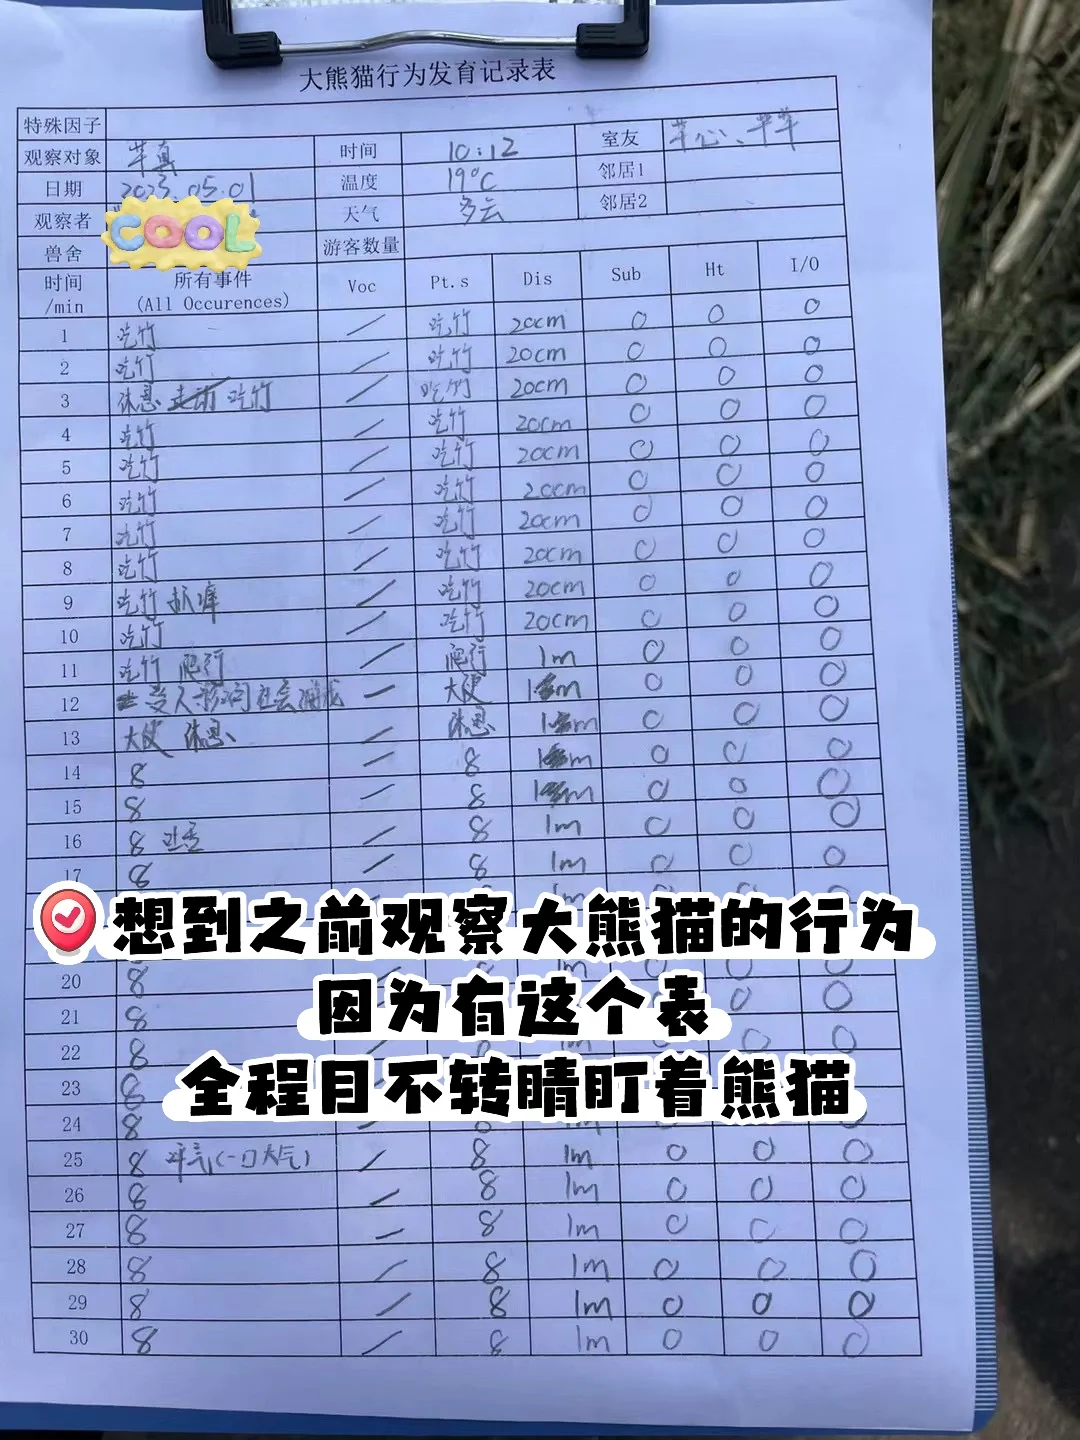 大熊猫行为发育记录表
特殊因子
观察对象 芊真 时间 10:12 室友 芊心、芊芊
日期 2023.05.01 温度 19°C 邻居1
观察者 天气 多云 邻居2
COOL
兽舍 游客数量
时间/min 所有事件(All Occurences) Voc Pt.s Dis Sub Ht I/O
1 吃竹 / 吃竹 20cm 0 0 0
2 吃竹 / 吃竹 20cm 0 0 0
3 休息 走动 吃竹 / 吃竹 20cm 0 0 0
4 吃竹 / 吃竹 20cm 0 0 0
5 吃竹 / 吃竹 20cm 0 0 0
6 吃竹 / 吃竹 20cm 0 0 0
7 吃竹 / 吃竹 20cm 0 0 0
8 吃竹 / 吃竹 20cm 0 0 0
9 吃竹 抓痒 / 吃竹 20cm 0 0 0
10 吃竹 / 吃竹 20cm 0 0 0
11 吃竹 爬行 / 爬行 1m 0 0 0
12 受人影响社会玩耍 / 大便 1m 0 0 0
13 大便 休息 / 休息 1m 0 0 0
14 8 / 8 1m 0 0 0
15 8 / 8 1m 0 0 0
16 8 / 8 1m 0 0 0
17 8 / 8 1m 0 0 0
想到之前观察大熊猫的行为
20 8 1m
因为有这个表
21 8 0 0
22 8 0 0
全程目不转睛盯着熊猫
23 8
24 8
25 8 叹气(一口大气) / 8 1m 0 0 0
26 8 / 8 1m 0 0 0
27 8 / 8 1m 0 0 0
28 8 / 8 1m 0 0 0
29 8 / 8 1m 0 0 0
30 8 / 8 1m 0 0 0